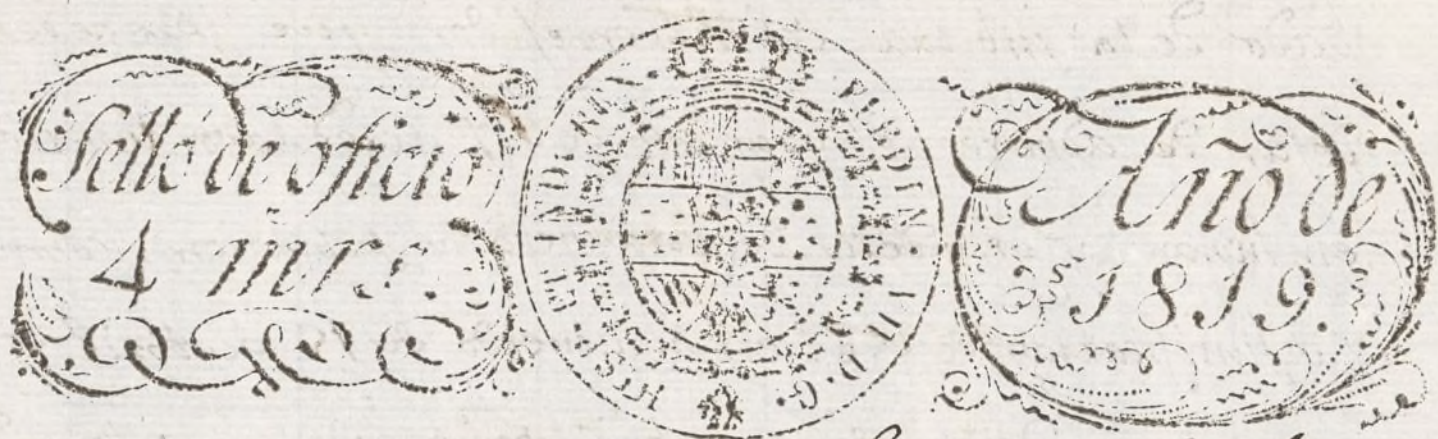 Sello de oficio
4 mrs.
FERDIN. VII. D. G.
HISP. ET IND. REX.
Año de
1819.